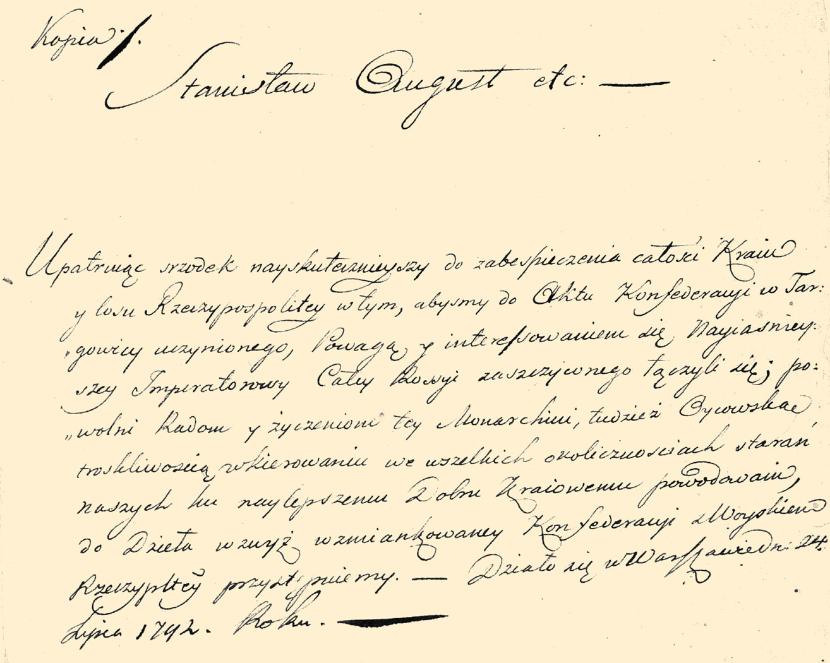 Kopia ./.
Stanisław August etc: —
Upatruiąc srzodek nayskutecznieyszy do zabespieczenia całosci Kraiu
y losu Rzeczypospolitey w tym, abysmy do Aktu Konfederacyi w Tar:
"gowicy uczynionego, Powagą y interessowaniem się Nayiasniey:
szey Imperatorowy Całey Rossyi zaszczyconego łączyli się; po:
"wolni Radom y życzeniom tey Monarchini, tudzież Oycowską
troskliwoscią w kierowaniu we wszelkich okolicznosciach starań
naszych ku naylepszemu Dobru Kraiowemu powodowani,
do Dzieła wzwyż wzmiankowaney Konfederacyi z Woyskiem
Rzeczypltey przystępuiemy. — Działo się w Warszawie dn: 24.
Lipca 1792. Roku. —